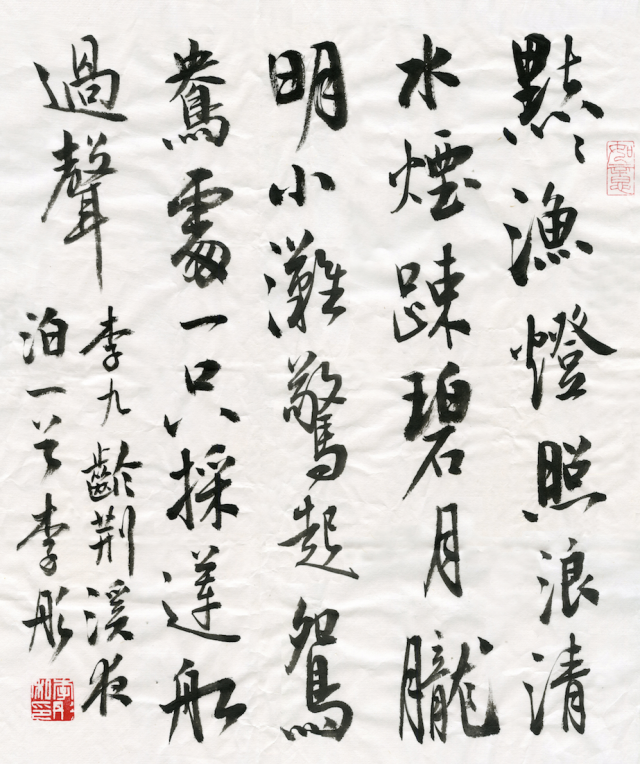 如意
點〻漁燈照浪清
水煙踈碧月朧
明小灘驚起鴛
鴦處一只採蓮船
過聲
李九齡荆溪夜
泊一首李彤